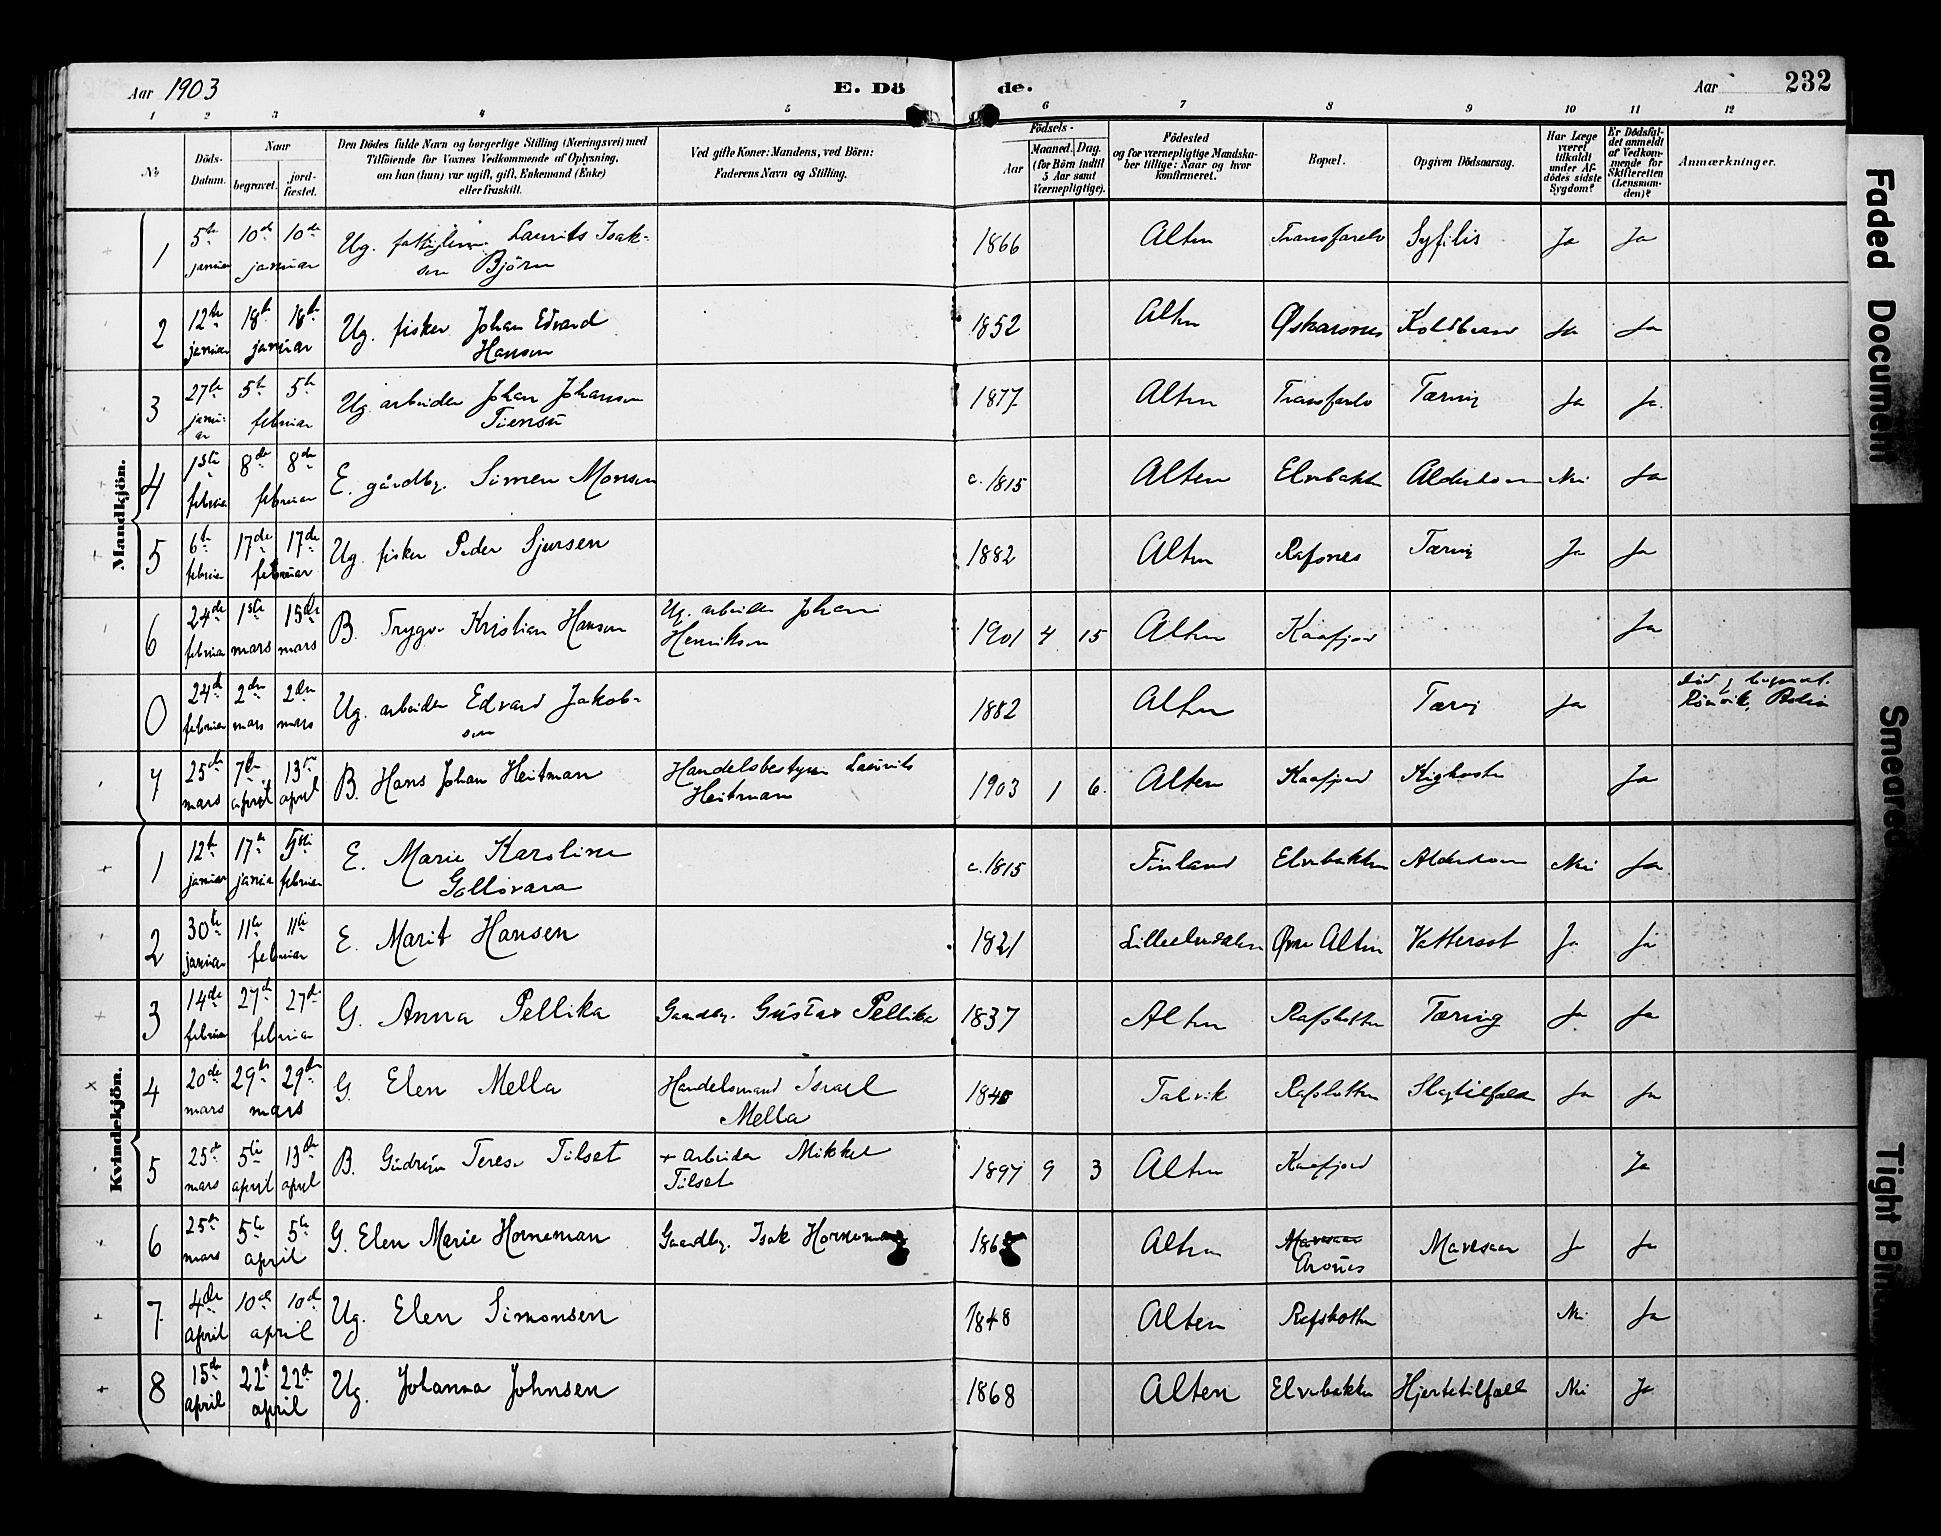 Aar 1903
E. Dö
de.
Aar
232
1 2 3 4 5 6 7 8 9 10 11 12
№
Döds-
Datum.
Naar
begravet.
jord-
fæstet.
Den Dödes fulde Navn og borgerlige Stilling (Næringsvei) med
Tilföiende for Voxnes Vedkommende af Oplysning,
om han (hun) var ugift, gift, Enkemand (Enke)
eller fraskilt.
Ved gifte Koner: Mandens, ved Börn:
Faderens Navn og Stilling.
Födsels-
Aar
Maaned. Dag.
(for Börn indtil
5 Aar samt
Værnepligtige).
Födested
og for værnepligtige Mandska-
ber tillige: Naar og hvor
konfirmeret.
Bopæl.
Opgiven Dödsaarsag.
Har Læge
været
tilkaldt
under Af-
dödes sidste
Sygdom?
Er Dödsfal-
det anmeldt
af Vedkom-
mende for
Skifteretten
(Lensman-
den)?
Anmærkninger.
Mandkjön.
1 5te januar 10de 10de januar Ug. Laurits Isak-
sen Björn 1866 Alten Transfarelv Syfilis Ja Ja
2 12te januar 18te 18te januar Ug. fisker Johan Edvard
Hansen 1852 Alten Oskarsnes Koldbrand Ja Ja
3 27te janu-
ar 5te 5te februar Ug. arbeider Johan Johansen
Tiensü 1877 Alten Transfarelv Tæring Ja Ja
4 1ste februar 8de 8de februar E. gårdbr. Simen Monsen c. 1815 Alten Elvebakken Alderdom Nei Ja
5 6te februar 17de 17de februar Ug. fisker Peder Sjursen 1882 Alten Rafsnes Tæring Ja Ja
6 24de februar 1ste mars 15de mars B. Trygve Kristian Hansen Ug. arbeider Johan
Henriksen 1901 4 15 Alten Kaafjord Ja
0 24de februar 2den mars 2den mars Ug. arbeider Edvard Jakob-
sen 1882 Alten Tæring Ja död og begravet
Rönvik, Bodin
7 25de mars 7de april 13de april B. Hans Johan Heitman Handelsbestyrer Laurits
Heitman 1903 1 6 Alten Kaafjord Kighoste Ja
Kvindekjön.
1 12te januar 17de januar februar E. Marie Karoline
Gellovara c. 1815 Finland Elvebakken Alderdom Nei Ja
2 30te januar 11te 11te februar E. Marit Hansen 1821 Lilleelvdalen Övre Alten Vattersot Ja Ja
3 14de februar 27de 27de februar G. Anna Pellika Gaardbr. Gustav Pellika 1837 Alten Rafsbotten Tæring Ja Ja
4 20de mars 29de 29de mars G. Elen Mella Handelsmand Israel
Mella Talvik Rafsbotten Slagtilfælde Ja Ja
5 25de mars 5te april 13de april B. Gudrun Terese Tilset + arbeider Mikkel
Tilset 1897 9 3 Alten Kaafjord Ja
6 25de mars 5te 5te april G. Elen Marie Horneman Gaardbr. Isak Horneman Alten Arones Mavesaar Ja Ja
7 4de april 10de 10de april Ug. Elen Simonsen 1848 Alten Rafsbotten Nei Ja
8 15de april 22d 22d april Ug. Johanna Johnsen 1868 Alten Elvebakken Hjertetilfælle Nei Ja
Faded Document
Smeared
Tight Bin